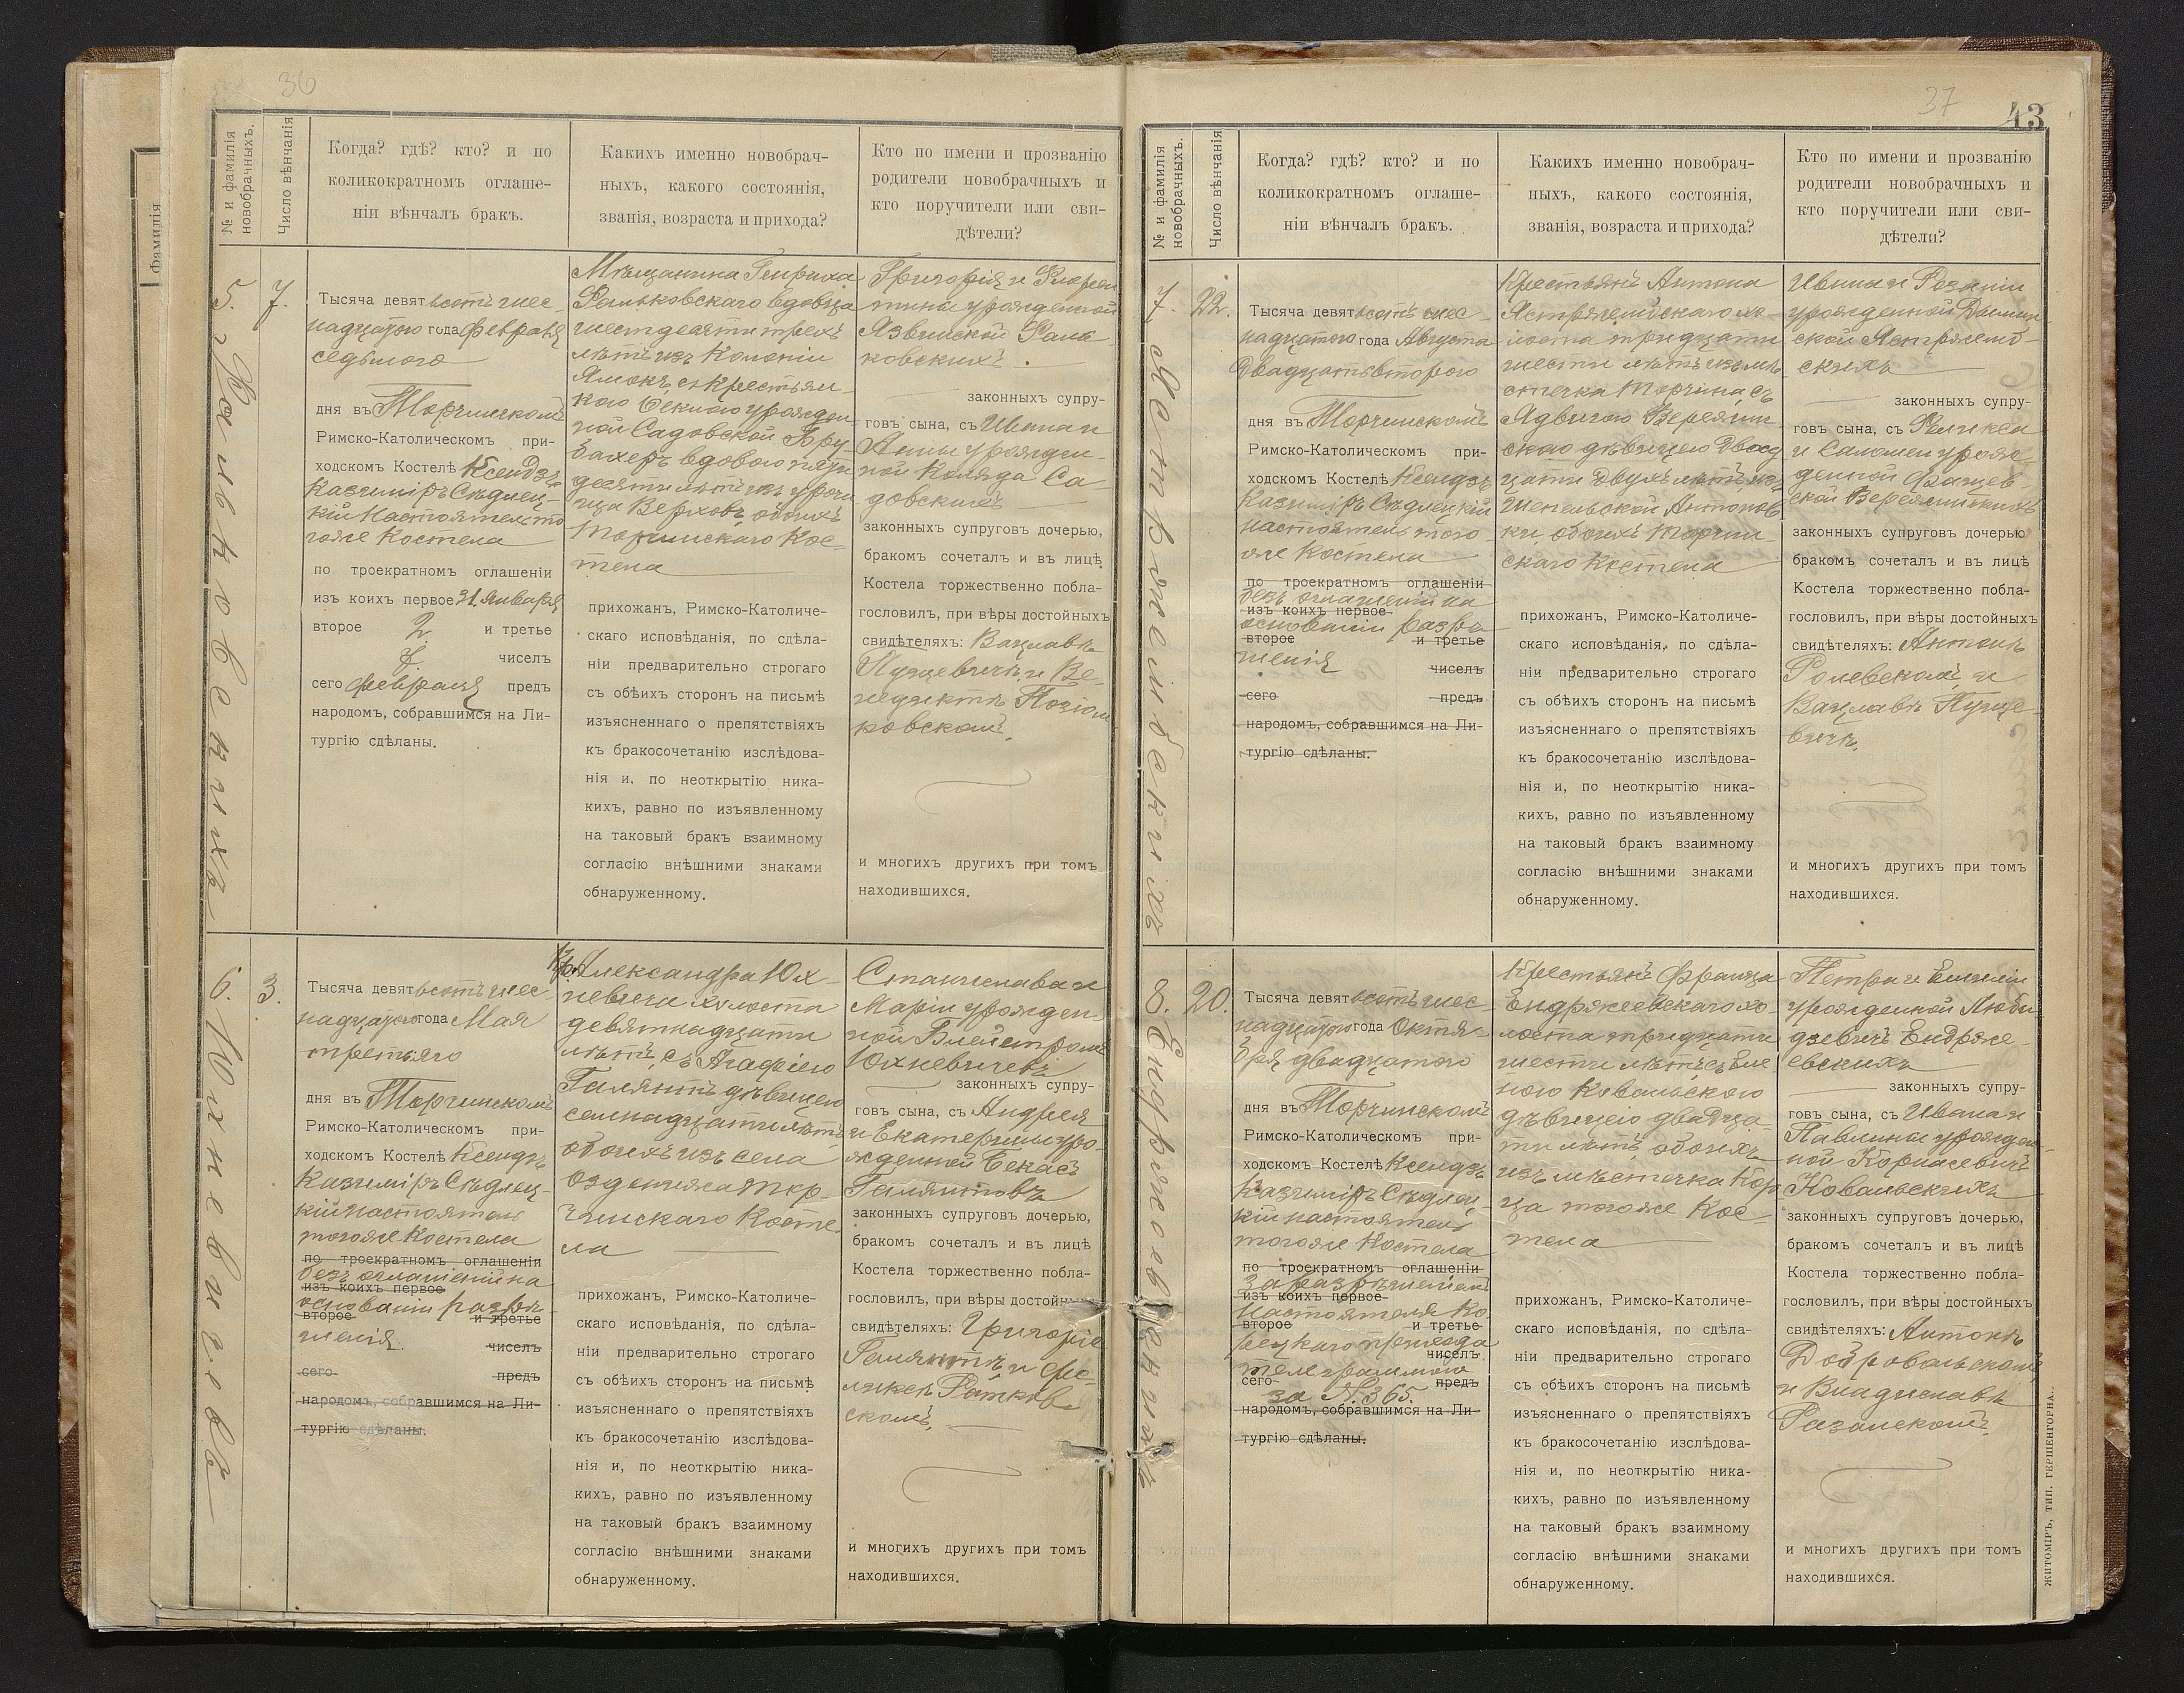 36
№ и фамилія новобрачныхъ.
Число вѣнчанія
Когда? гдѣ? кто? и по
коликократномъ оглаше-
ніи вѣнчалъ бракъ.
Какихъ именно новобрач-
ныхъ, какого состоянія,
званія, возраста и прихода?
Кто по имени и прозванію
родители новобрачныхъ и
кто поручители или сви-
дѣтели?
Фамилія
5.
7.
Тысяча девятьсотъ шес-
надцатого года Февраля
седьмого
дня въ Торчинскомъ
Римско-Католическомъ при-
ходскомъ Костелѣ Ксендзъ
Казиміръ Сѣдлец-
кій Настоятель то
гоже Костела
по троекратномъ оглашеніи
изъ коихъ первое 31. Января
второе 2 и третье
7. чиселъ
сего Февраля предъ
народомъ, собравшимся на Ли-
тургію сдѣланы.
Мѣщанина Генриха
вдовца
шестдесяти трехъ
лѣтъ изъ Колоніи
Ямокъ, съ крестьян-
кою урожден
ной Садовской
вдовою пяти
десяти лѣтъ изъ урочи
ща Верховъ, обоихъ
Торчинскаго Кос-
тела
прихожанъ, Римско-Католиче-
скаго исповѣданія, по сдѣла-
ніи предварительно строгаго
съ обѣихъ сторонъ на письмѣ
изъясненнаго о препятствіяхъ
къ бракосочетанію изслѣдова-
нія и, по неоткрытію ника-
кихъ, равно по изъявленному
на таковый бракъ взаимному
согласію внѣшними знаками
обнаруженному.
Григорія и Флорен
тины урожденной
Язвинской
ковскихъ
законныхъ супру-
говъ сына, съ Ивана и
Анны урожден-
ной Коляда Са
довскихъ
законныхъ супруговъ дочерью,
бракомъ сочеталъ и въ лицѣ
Костела торжественно побла-
гословилъ, при вѣры достойныхъ
свидѣтеляхъ: Вацлавѣ
Пузцевичѣ и Ве-
недиктѣ
ковскомъ.
и многихъ другихъ при томъ
находившихся.
6. Юхневичевъ
3.
Тысяча девятьсотъ шес-
надцатого года Мая
третьяго
дня въ Торчинскомъ
Римско-Католическомъ при-
ходскомъ Костелѣ Ксендзъ
Казиміръ Сѣдлец-
кій Настоятель
тогоже Костела
по троекратномъ оглашеніи
безъ оглашеній на
изъ коихъ первое
основаніи разрѣ-
второе и третье
шенія. чиселъ
сего предъ
народомъ, собравшимся на Ли-
тургію сдѣланы.
Кр. Александра Юх-
невича холоста
девятнадцати
лѣтъ, съ Агафіею
Галянтъ дѣвицею
семнадцати лѣтъ
обоихъ изъ села
Оздютичъ Тор-
чинскаго Косте-
ла
прихожанъ, Римско-Католиче-
скаго исповѣданія, по сдѣла-
ніи предварительно строгаго
съ обѣихъ сторонъ на письмѣ
изъясненнаго о препятствіяхъ
къ бракосочетанію изслѣдова-
нія и, по неоткрытію ника-
кихъ, равно по изъявленному
на таковый бракъ взаимному
согласію внѣшними знаками
обнаруженному.
Станислава и
Маріи урожден
ной
Юхневичевъ
законныхъ супру-
говъ сына, съ Андрея
и Екатерины уро-
жденной Бекасъ
Галянтовъ
законныхъ супруговъ дочерью,
бракомъ сочеталъ и въ лицѣ
Костела торжественно побла-
гословилъ, при вѣры достойныхъ
свидѣтеляхъ: Григоріѣ
Галянтѣ и Фе-
ликсѣ Ратков
скомъ.
и многихъ другихъ при томъ
находившихся.
37
43
№ и фамилія новобрачныхъ.
Число вѣнчанія
Когда? гдѣ? кто? и по
коликократномъ оглаше-
ніи вѣнчалъ бракъ.
Какихъ именно новобрач-
ныхъ, какого состоянія,
званія, возраста и прихода?
Кто по имени и прозванію
родители новобрачныхъ и
кто поручители или сви-
дѣтели?
7. Ястржембскихъ
22.
Тысяча девятьсотъ шес-
надцатого года Августа
двадцатьвторого
дня въ Торчинскомъ
Римско-Католическомъ при-
ходскомъ Костелѣ Ксендзъ
Казиміръ Сѣдлецкій
настоятель того-
же Костела
по троекратномъ оглашеніи
безъ оглашеній на
изъ коихъ первое
основаніи разрѣ
второе и третье
шенія чиселъ
сего предъ
народомъ, собравшимся на Ли-
тургію сдѣланы.
Крестьянъ Антона
Ястржембскаго хо-
лоста тридцати
шести лѣтъ изъ мѣ-
стечка Торчина, съ
Ядвигою Верещин-
скою дѣвицею двад-
цати двухъ лѣтъ, изъ
Антонов-
ки, обоихъ Торчин-
скаго Костела
прихожанъ, Римско-Католиче-
скаго исповѣданія, по сдѣла-
ніи предварительно строгаго
съ обѣихъ сторонъ на письмѣ
изъясненнаго о препятствіяхъ
къ бракосочетанію изслѣдова-
нія и, по неоткрытію ника-
кихъ, равно по изъявленному
на таковый бракъ взаимному
согласію внѣшними знаками
обнаруженному.
Ивана и Розаліи
урожденной
ской Ястржемб-
скихъ
законныхъ супру-
говъ сына, съ Феликса
и Саломеи урож-
денной
ской Верещинскихъ
законныхъ супруговъ дочерью
бракомъ сочеталъ и въ лицѣ
Костела торжественно побла-
гословилъ, при вѣры достойныхъ
свидѣтеляхъ: Антонѣ
и
Вацлавѣ Пузце-
вичѣ.
и многихъ другихъ при томъ
находившихся.
8. Ендржеевскихъ
20.
Тысяча девятьсотъ шес-
надцатого года Октя-
бря двадцатого
дня въ Торчинскомъ
Римско-Католическомъ при-
ходскомъ Костелѣ Ксендзъ
Казиміръ Сѣдлец-
кій настоятель
тогоже Костела
по троекратномъ оглашеніи
за разрѣшеніемъ
изъ коихъ первое
Настоятеля Ко-
второе и третье
рецкаго прихода
чиселъ
телеграммою
сего предъ
за №. 365.
народомъ, собравшимся на Ли-
тургію сдѣланы.
Крестьянъ Франца
Ендржеевскаго хо-
лоста тридцати
шести лѣтъ, съ Еле
ною Ковальскою
дѣвицею двадца-
ти лѣтъ, обоихъ
изъ мѣстечка Кор
ца тогоже Кос-
тела
прихожанъ, Римско-Католиче-
скаго исповѣданія, по сдѣла-
ніи предварительно строгаго
съ обѣихъ сторонъ на письмѣ
изъясненнаго о препятствіяхъ
къ бракосочетанію изслѣдова-
нія и, по неоткрытію ника-
кихъ, равно по изъявленному
на таковый бракъ взаимному
согласію внѣшними знаками
обнаруженному.
Петра и Емиліи
урожденной Люби
дзевичъ Ендрже-
евскихъ
законныхъ супру-
говъ сына, съ Ивана и
Павлины урожден-
ной Корнасевичъ
Ковальскихъ
законныхъ супруговъ дочерью,
бракомъ сочеталъ и въ лицѣ
Костела торжественно побла-
гословилъ, при вѣры достойныхъ
свидѣтеляхъ: Антонѣ
Добровольскомъ
и Владиславѣ
Разанскомъ.
и многихъ другихъ при томъ
находившихся.
ЖИТОМІРЪ, ТИП. ГЕРШЕНГОРНА.